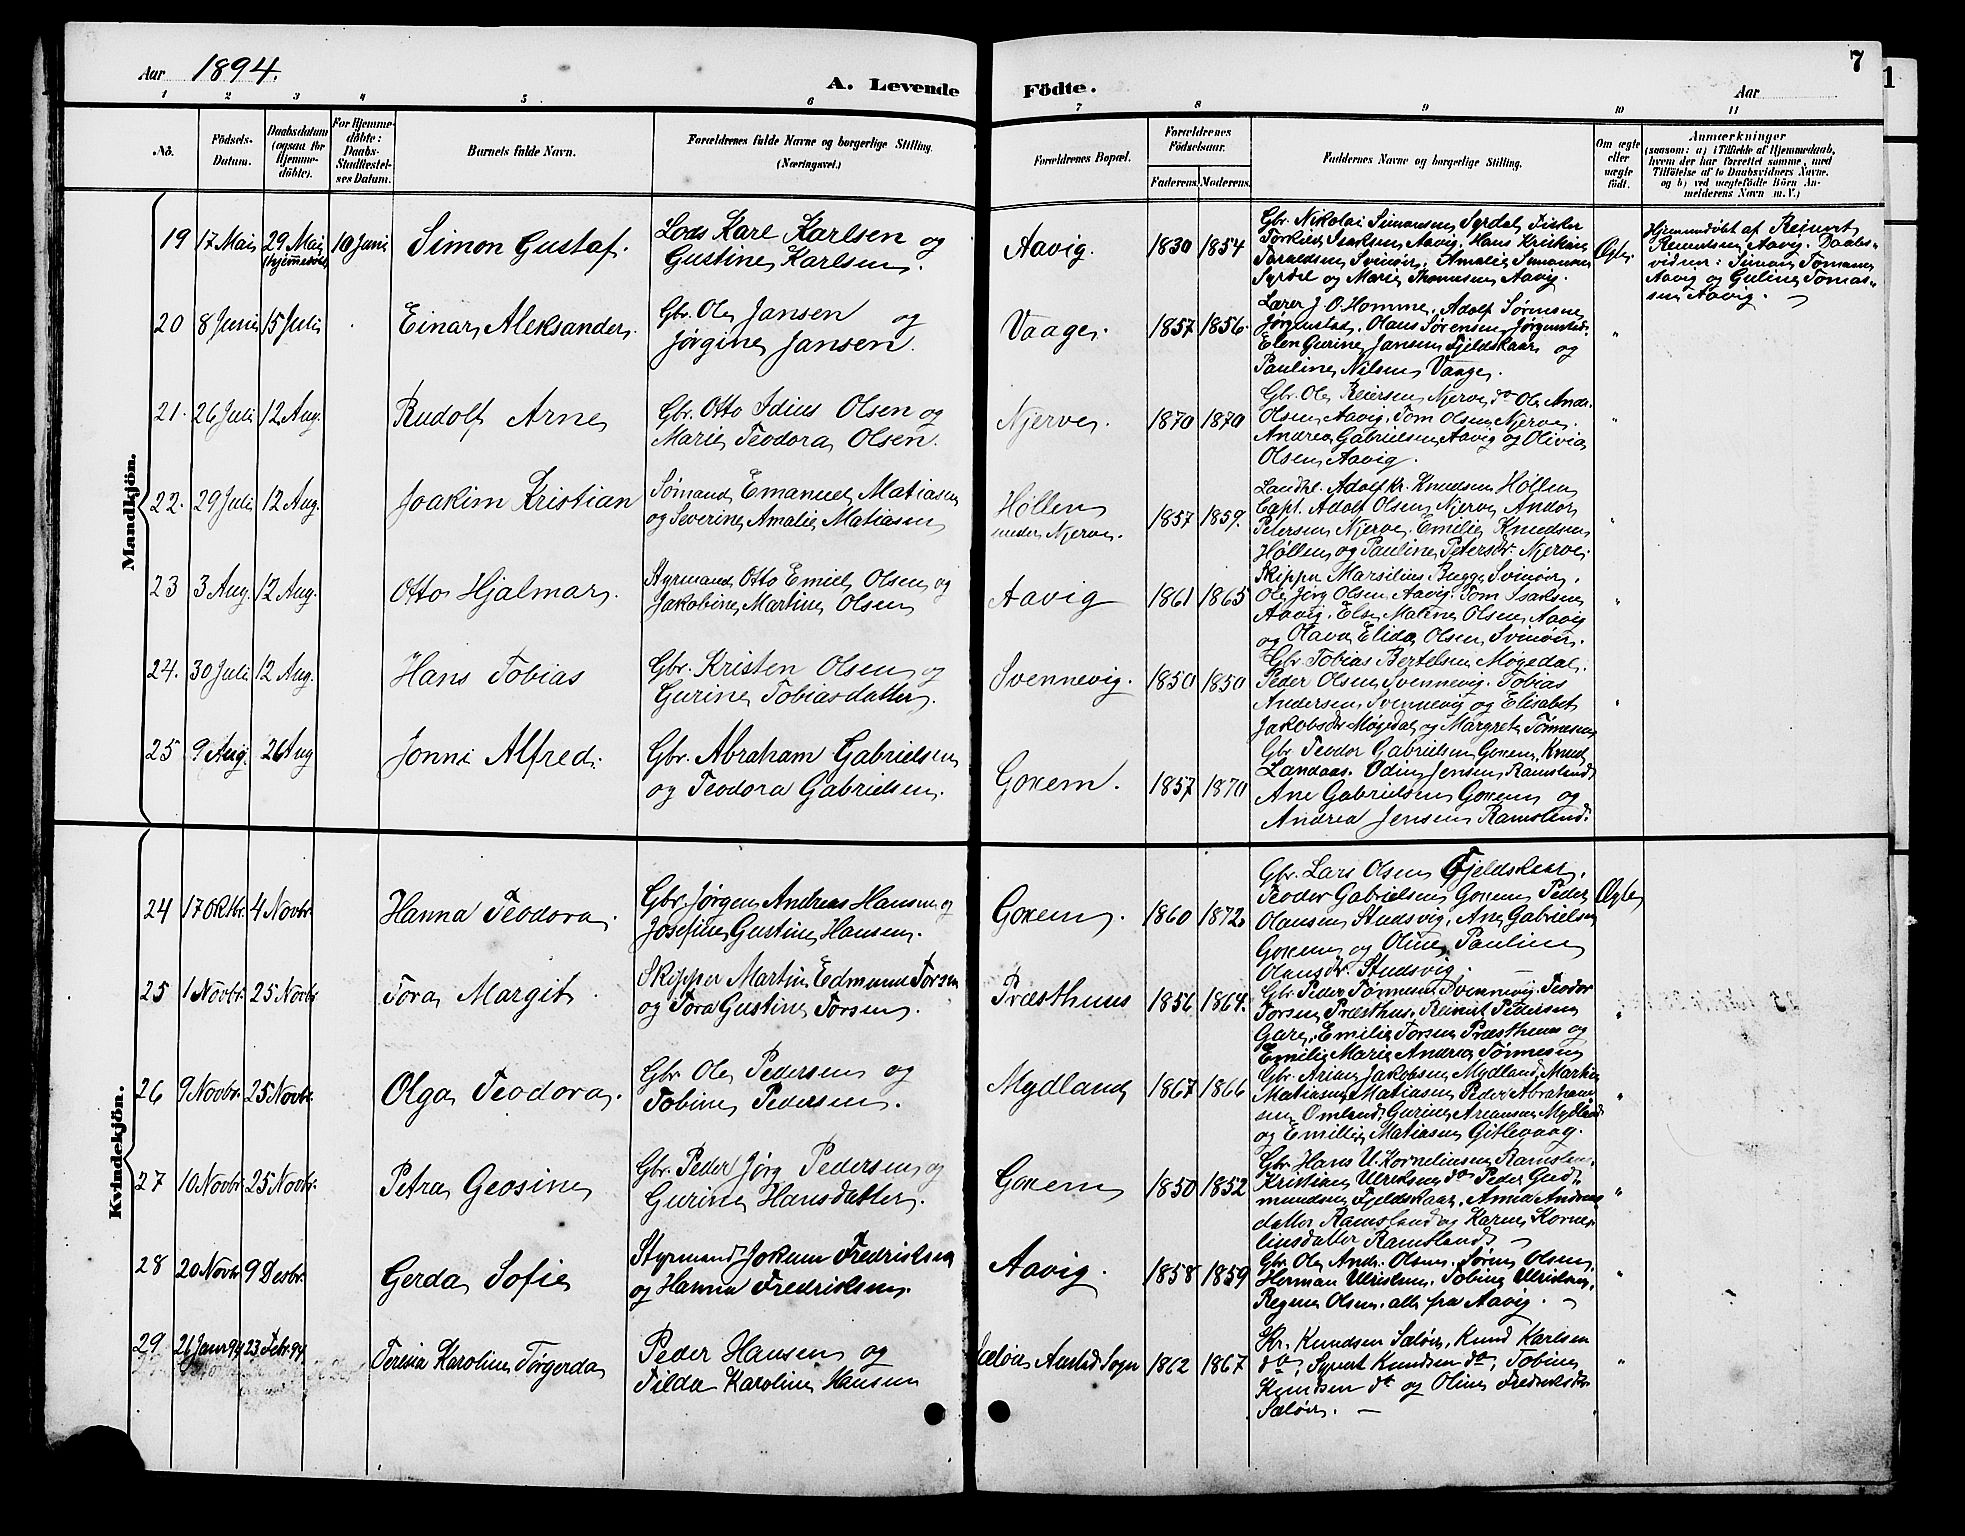 Aar 1894.
A. Levende Födte.
7
Aar
1 2 3 4 5 6 7 8 9 10 11
Nô.
Födsels-Datum.
Daabsdatum (ogsaa for Hjemme-döbte).
For Hjemme-döbte: Daabs-Stadfæstel-ses Datum.
Barnets fulde Navn.
Forældrenes fulde Navne og borgerlige Stilling. (Næringsvei.)
Forældrenes Bopæl.
Forældrenes Födselsaar.
Faderens. Moderens.
Faddernes Navne og borgerlige Stilling.
Om ægte eller uægte födt.
Anmærkninger
(saasom: a) i Tilfælde af Hjemmedaab,
hvem der har forrettet samme, med
Tilföielse af to Daabsvidners Navne,
og b) ved uægtefödte Börn An-
melderens Navn m. V.)
Mandkjön.
19 17 Mai 29 Mai (hjemmedøbt) 10 Juni Simon Gustaf.
Lods Karl Karlsen og
Gustine Karlsen.
Aavig. 1830 1854
Gbr. Nikolai Simonsen Syrdal, Fisker
Torkild Isaksen Aavig. Hans Kristian
Svinør. Amalie Simonsen
Syrdal og Marie Thomesen Aavig.
Ægte.
Hjemmedøbt af Reinert
Reinertsen Aavig. Daabs-
vidner: Simon Tomasen
Aavig og Guline Tomas-
sen Aavig. —
20 8 Juni 15 Juli Einar Aleksander.
Gbr. Ole Jansen og
Jørgine Jansen.
Vaage. 1857 1856.
Lærer J. O. Homme, Adolf Sørensen
Jørgenstad. Olaus Sørensen Jørgenstad.
Elen Gurine Jansen Fjeldskaar og
Pauline Nilsen Vaage.
"
21. 26 Juli 12 Aug. Rudolf Arne
Gbr. Otto Idius Olsen og
Marie Teodora Olsen.
Njerve. 1870 1870
Gbr. Ole Reiersen Njerve, do Ole Andr.
Olsen Aavig, Tom Olsen Njerve.
Andrea Gabrielsen Aavig og Olivia
Olsen Aavig.
"
22. 29 Juli 12 Aug. Joakim Kristian
Sømand Emanuel Matiasen
og Severine Amalie Matiasen
Høllen
under Njerve. 1857 1859.
Landhl. Adolf Kr. Knudsen Høllen
Capt. Adolf Olsen Njerve, Andor
Petersen Njerve, Emilie Knudsen
Høllen og Pauline Petersdr. Njerve.
"
23 3 Aug. 12 Aug. Otto Hjalmar.
Styrmand Otto Emil Olsen og
Jakobine Martine Olsen
Aavig 1861 1865
Skipper Marsilius Bugge Svinør.
Ole Jørg Olsen Aavig. Tom Isaksen
Aavig. Else Maline Olsen Aavig
og Olava Elida Olsen Svinør.
"
24. 30 Juli 12 Aug. Hans Tobias
Gbr. Kristen Olsen og
Gurine Tobiasdatter.
Svennevig. 1850 1850
Gbr. Tobias Bertelsen Møgedal.
Peder Olsen Svennevig. Tobias
Andersen Svennevig og Elisabet
Jakobsdr. Møgedal og Margrete Tønnesen
"
25 9 Aug. 26 Aug Jonni Alfred.
Gbr. Abraham Gabrielsen
og Teodora Gabrielsen.
Goxem. 1857 1870
Gbr Teodor Gabrielsen Goxem, Knud
Landaas. Odin Jensen Ramsland
Ane Gabrielsen Goxem og
Andrea Jensen Ramsland.
Kvindekjön.
24 17 Oktbr. 4 Novbr. Hanna Teodora.
Gbr. Jørgen Andreas Hansen og
Josefine Gustine Hansen.
Goxem. 1860 1872.
Gbr. Lars Olsen
Teodor Gabrielsen Goxem Peder
Olausen Studsvig. Ane Gabrielsen
Goxem og Oline Pauline
Olausdr. Studsvig.
Ægte
25 1 Novbr. 25 Novbr. Tora Margit.
Skipper Martin Edmund Torsen
og Tora Gustine Torsen.
Præsthuus 1856 1864.
Gbr. Peder Tønnesen Svennevig. Teodor
Torsen Præsthus. Reinert Pedersen
Gare, Emilie Torsen Præsthuus og
Emilie Marie Andrea Tønnesen
"
26 9 Novbr. 25 Novbr. Olga Teodora.
Gbr. Ole Pedersen og
Tobine Pedersen.
Mydland 1867 1866
Gbr. Arian Jakobsen Mydland, Martin
Matiasen Matiasen Peder Abraham-
sen Omland. Gurine Ariansen Mydland
og Emillie Matiasen Gitlevaag.
"
27 10 Novbr. 25 Novbr. Petra Geosine
Gbr. Peder Jørg Pedersen og
Gurine Hansdatter.
Goxem 1850 1852
Gbr. Hans U. Kornelinsen Ramslan.
Kristian Ulriksen do Peder Gud-
mundsen Fjeldskaar. Anna Andreas
datter Ramsland og Karen Korne-
liusdatter Ramsland. —
"
28 20 Novbr 9 Desbr. Gerda Sofie
Styrmand Jokum Fredriksen
og Hanna Fredriksen.
Aavig. 1858 1859
Gbr. Ole Andr. Olsen. Søren Olsen,
Herman Ulriksen. Tobine Ulriksen.
Regine Olsen. alle fra Aavig. —
"
29 26 Janr 94 23 Febr. 94 Teresia Karoline Törgerda
Peder Hansen og
Tilda Karoline Hansen
Sæløer Austad Sogn 1862 1867
Kr. Knudsen Sæløer, Knud Karlsen
do, Syvert Knudsen do, Tobine
Knudsen do og Oline Fredriksdr.
Sæløer. —
"